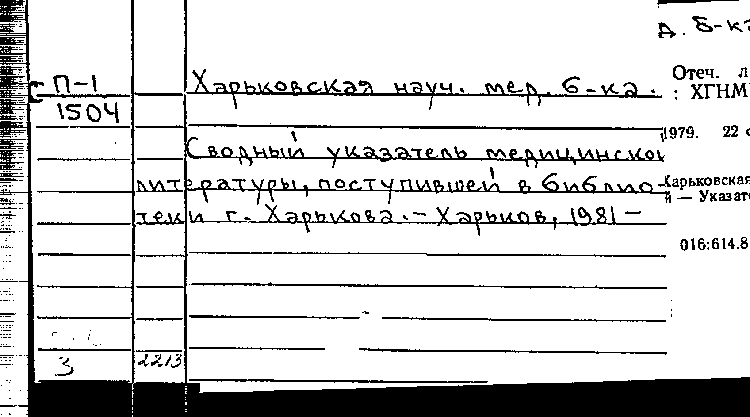 П-1
1504
Харьковская науч. мед. б-ка.
Сводный указатель медицинской
литературы, поступившей в библио-
теки г. Харькова. – Харьков, 1981 –
3 2213
д. б-ка
Отеч. л
: ХГНМ
1979. 22 с
Харьковская
й — Указате
016:614.8